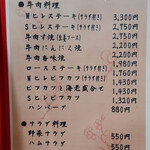 ●牛肉料理
Wヒレステーキ(サラダ付き) 3,300円
Sヒレステーキ(サラダ付き) 2,750円
牛肉から焼(生姜ソース) 2,200円
牛肉にんにく焼 2,200円
牛肉香味焼 2,200円
ロースステーキ(サラダ付き) 1,980円
Wヒレビフカツ 1,760円
ビフカツと海老盛合せ 1,430円
Sヒレビフカツ 1,320円
ハンバーグ 880円
●サラダ料理
野菜サラダ 550円
ハムサラダ 550円